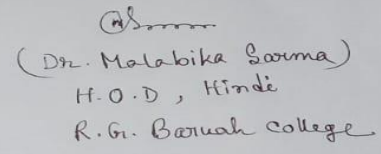 (Dr. Malabika Sarma)
H.O.D, Hindi
R.G. Baruah college